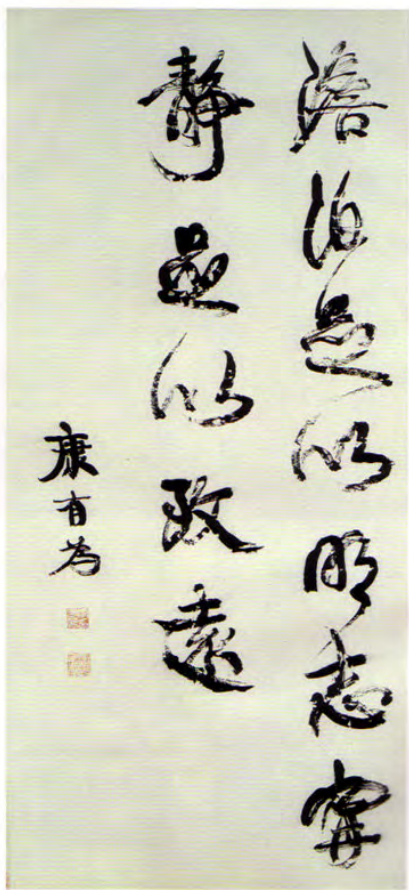 澹泊足以明志寧
靜足以致遠
康有為